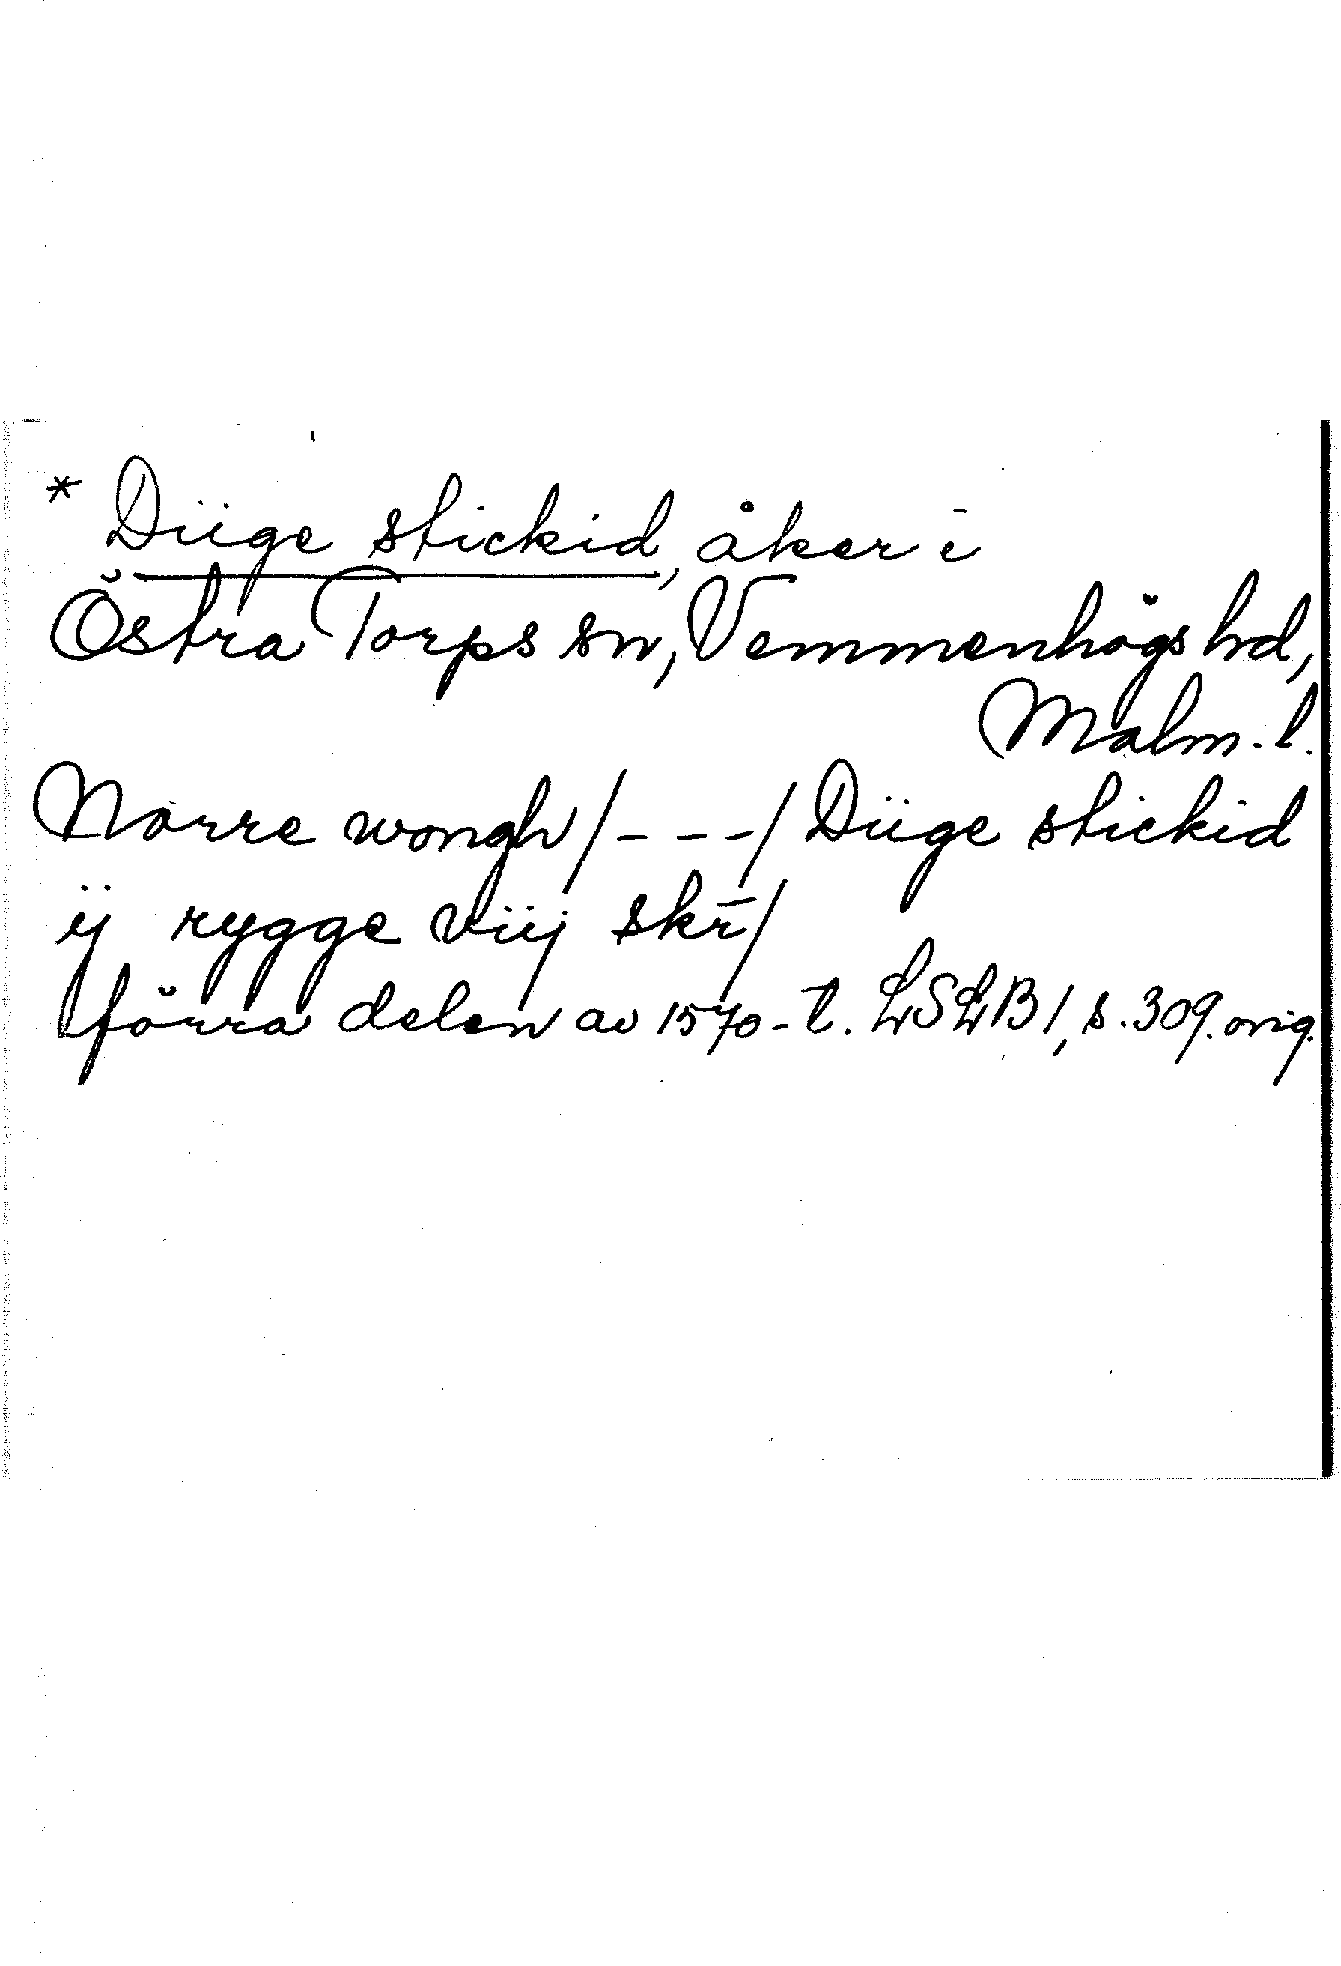 * Düge stickid, åker i
Östra Torps sn, Vemmenhögs hd,
Malm. l.
Nørre wongh /- - -/ Düge stickid
ij rygge viij skr̄/
förra delen av 1570-t. LSLB 1, s. 309. orig.